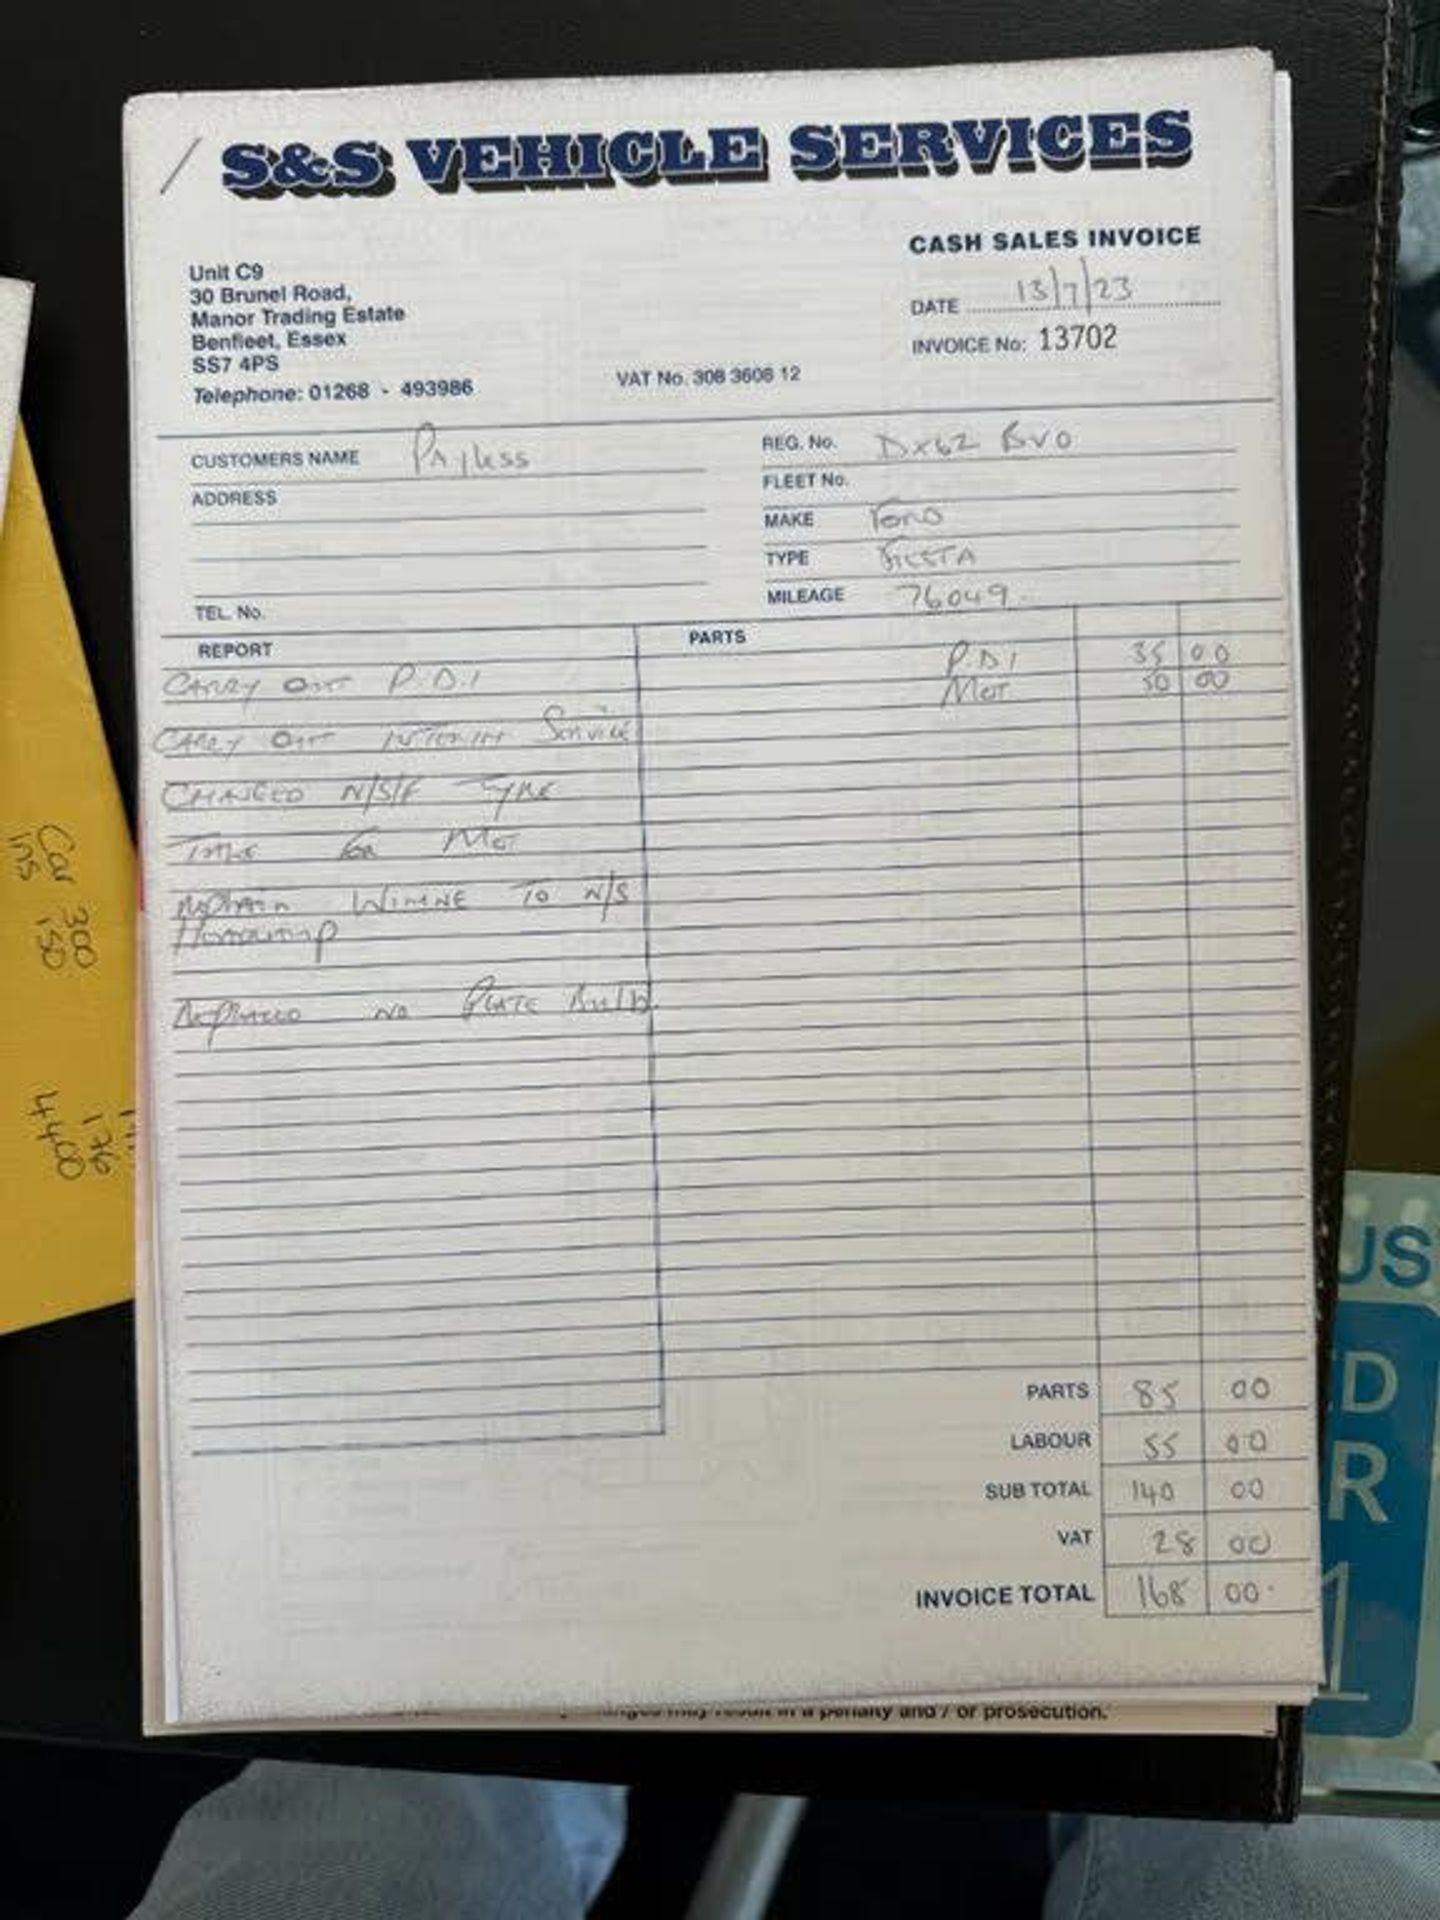 S&S VEHICLE SERVICES
CASH SALES INVOICE
Unit C9
30 Brunel Road,
Manor Trading Estate
Benfleet, Essex
SS7 4PS
Telephone: 01268 - 493986
VAT No. 308 3608 12
DATE 13/7/23
INVOICE No: 13702
CUSTOMERS NAME Payless
ADDRESS
TEL. No.
REG. No. DX62 BVO
FLEET No.
MAKE FORD
TYPE FIESTA
MILEAGE 76049.
REPORT
PARTS
CARRY OUT P.D.I
P.D.I 35 00
MOT 50 00
CARRY OUT INTERIM Service
CHANGED N/S/F TYRE
TAKE FOR MOT
WIRING TO N/S
Replaced NO PLATE Bulb.
PARTS 85 00
LABOUR 55 00
SUB TOTAL 140 00
VAT 28 00
INVOICE TOTAL 168 00.
may result in a penalty and / or prosecution.
Car 300
ins 150
176
4400
US
ED
R
1